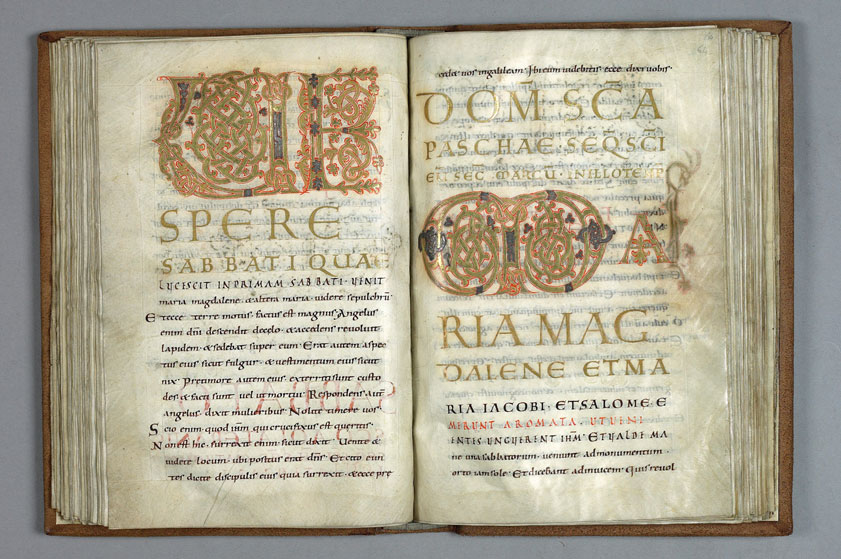 VE
SPERE
SABBATI QUAE
LUCISCIT IN PRIMAM SABBATI · VENIT
maria magdalene · & altera maria · videre sepulchrū
Et ecce terre motus · factus est magnus · Angelus
enim dn̄i descendit decelo · & accedens revoluit
lapidem · & sedebat super eum · Erat autem aspec
tus eius sicut fulgur · & vestimentum eius sicut
nix · Pretimore autem eius exterriti sunt custo
des & facti sunt vel ut mortui · Respondens aut̄
angelus · dixit mulieribus · Nolite timere vos ·
Scio enim quod ihm̄ qui crucifixus est queritis ·
Non est hic · surrexit enim sicut dixit · Venite &
videte locum · ubi positus erat dn̄s · Et cito eun
tes dicite discipulis eius quia surrexit · & ecce pre
cedet vos ingalileam · Ibi eum videbitis · ecce dixi vobis ·
DOM̄ · SC̄A
PASCHAE · SEQ̄ · SC̄I
EV̄ · SEC̄ · MARCŪ · IN ILLO TEMP̄
MA
RIA MAG
DALENE ET MA
RIA IACOBI · ET SALOME · E
MIRUNT AROMATA · UT VENI
ENTES UNGUERENT IHM̄ · ET VALDE MA
ne una sabbatorum · veniunt ad monumentum ·
orto iam sole · Et dicebant ad invicem · Quis revol